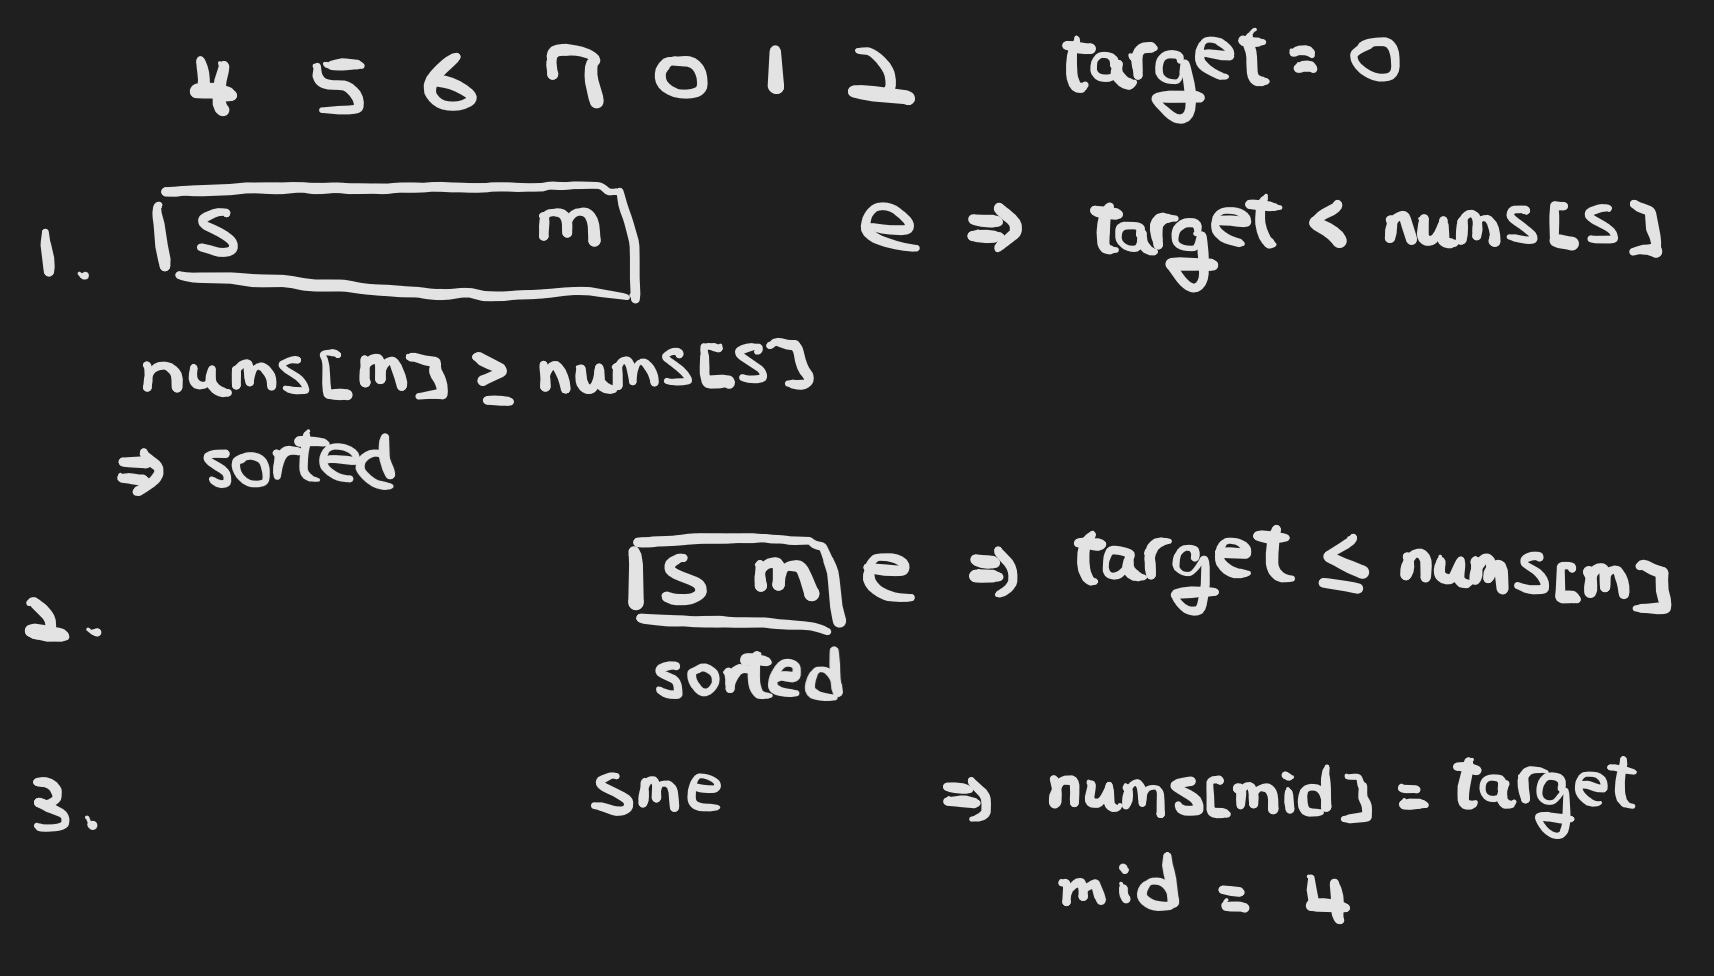 4 5 6 7 0 1 2 target = 0
1. s m e ⇒ target < nums[s]
nums[m] ≥ nums[s]
⇒ sorted
2. s m e ⇒ target ≤ nums[m]
sorted
3. sme ⇒ nums[mid] = target
mid = 4